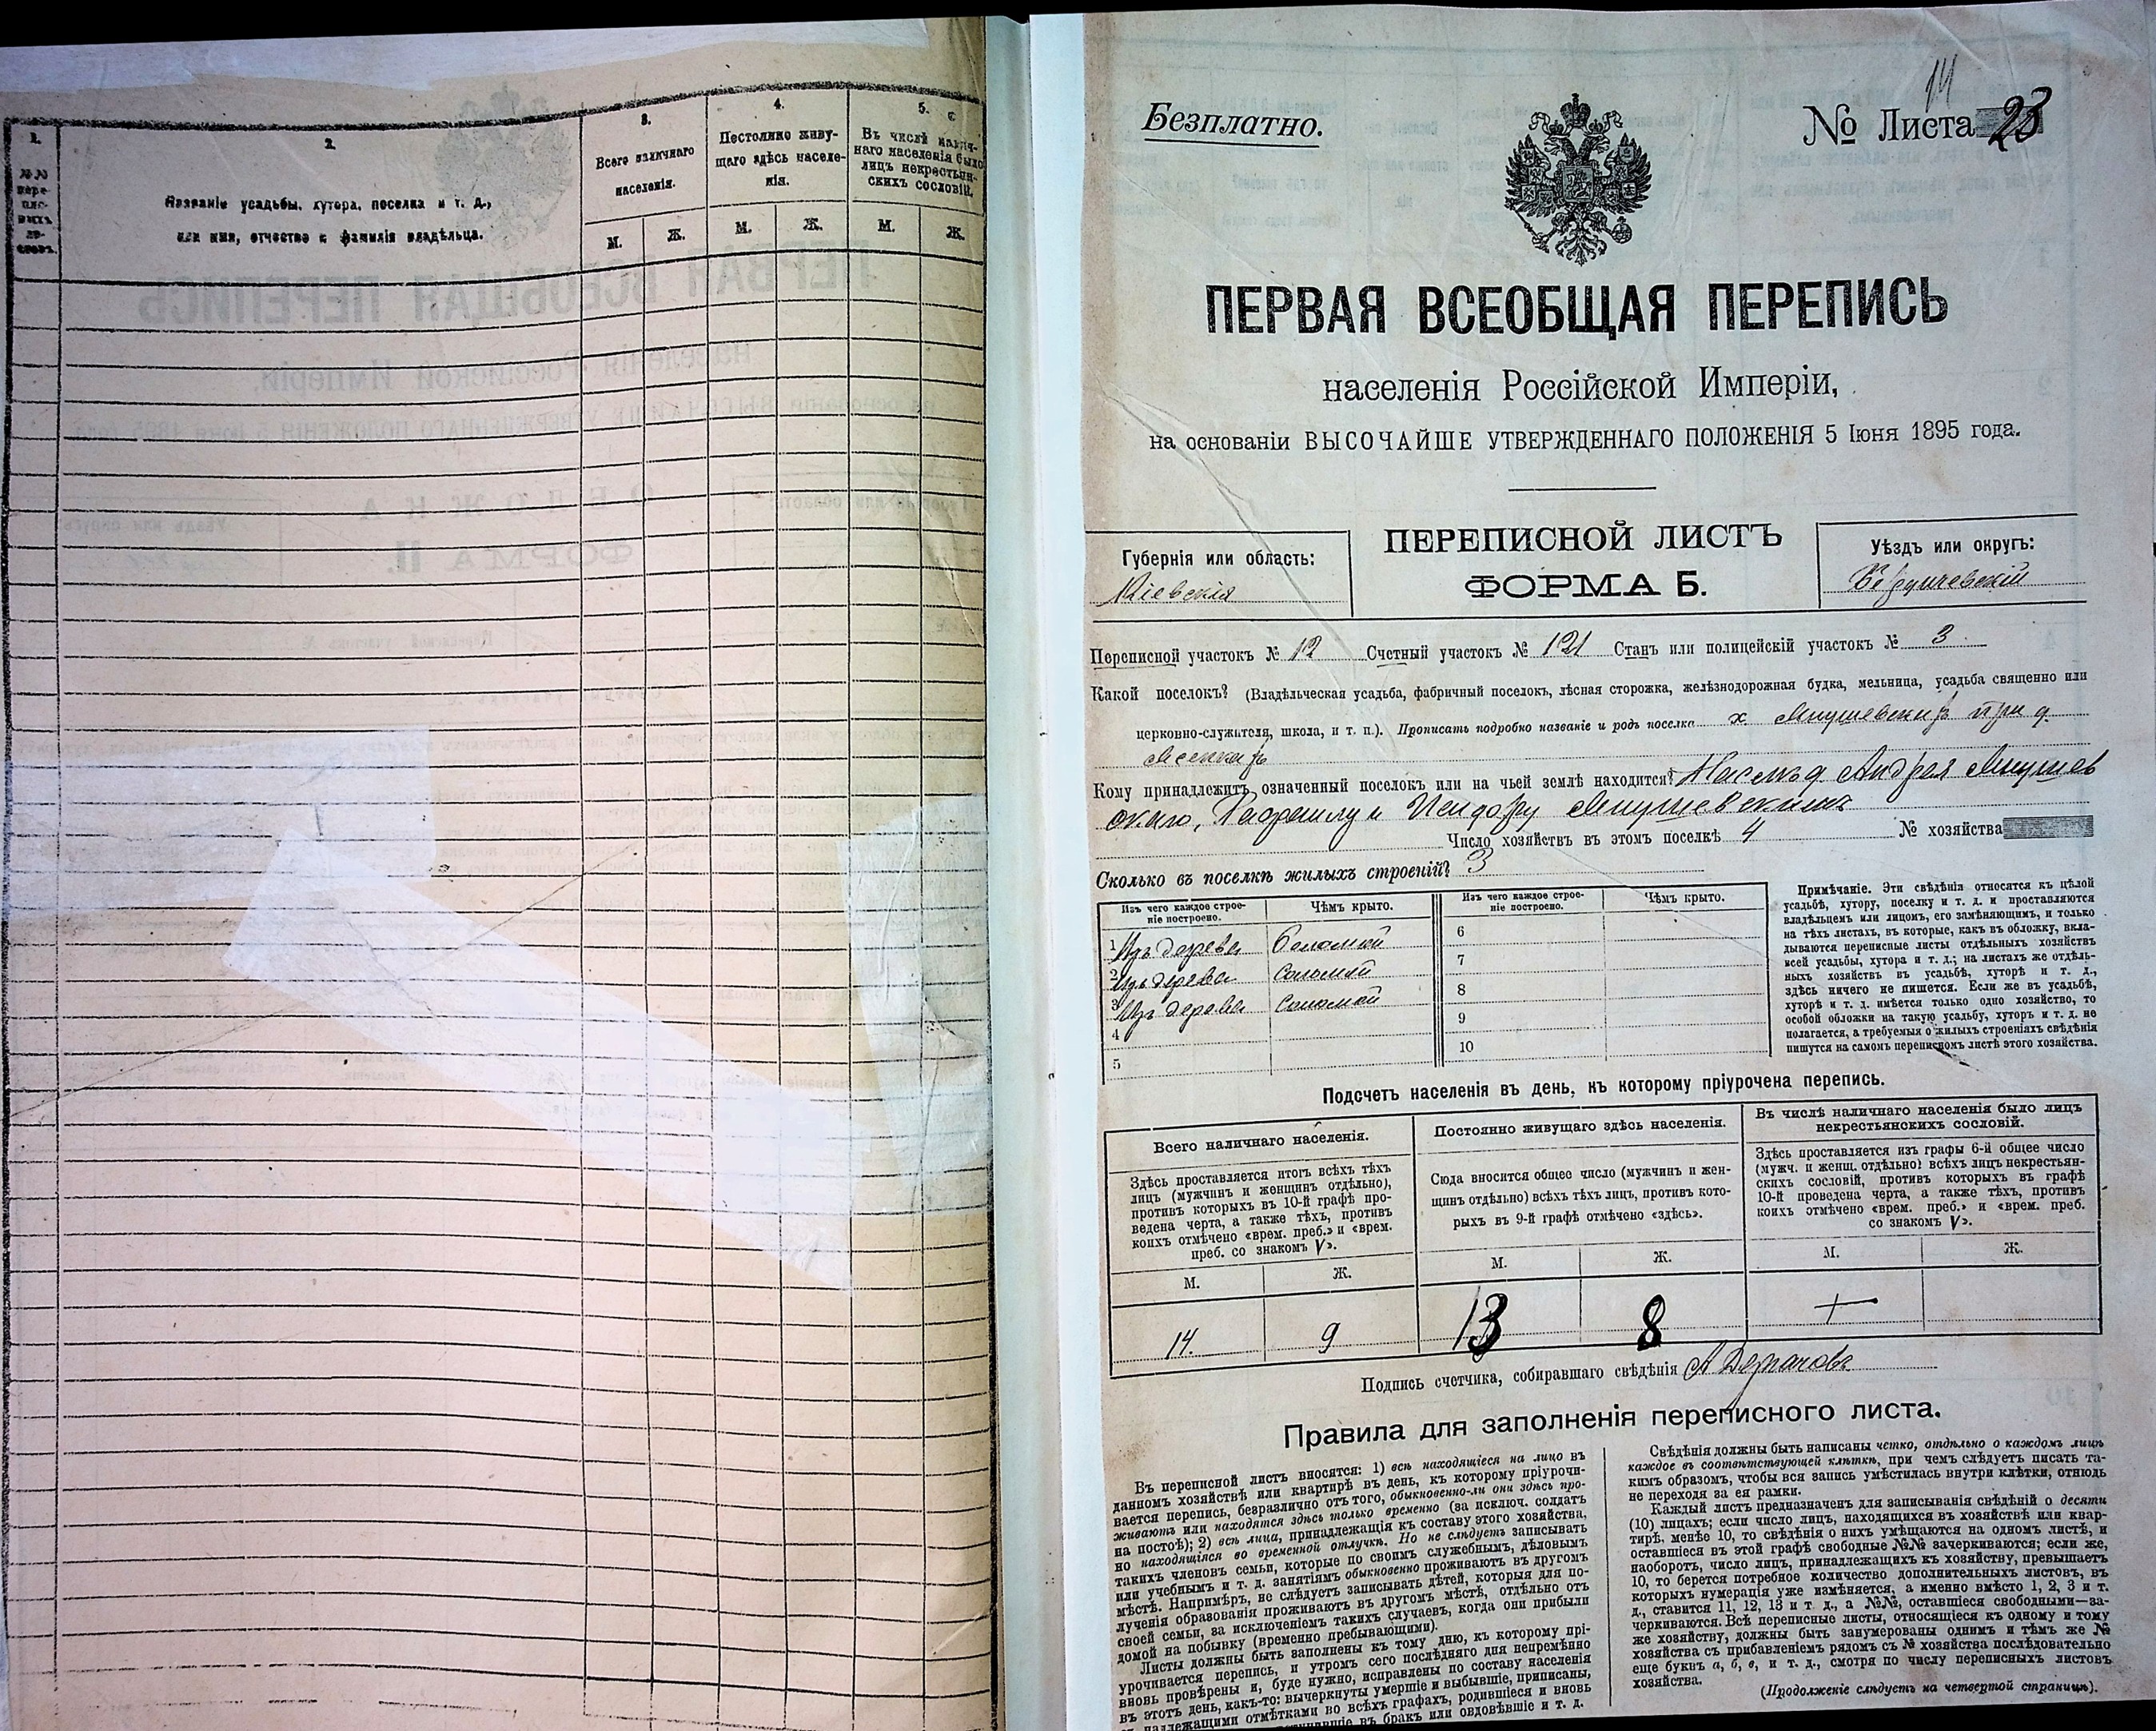 1.
№№ пере-
пис-
ныхъ
ли-
стовъ.
2.
Названіе усадьбы, хутора, поселка и т. д.,
или имя, отчество и фамилія владѣльца.
3.
Всего наличнаго
населенія.
М. Ж.
4.
Постоянно живу-
щаго здѣсь населе-
нія.
М. Ж.
5.
Въ числѣ налич-
наго населенія было
лицъ некрестьян-
скихъ сословій.
М. Ж.
14
Безплатно.
№ Листа 23
ПЕРВАЯ ВСЕОБЩАЯ ПЕРЕПИСЬ
населенія Россійской Имперіи,
на основаніи ВЫСОЧАЙШЕ УТВЕРЖДЕННАГО ПОЛОЖЕНІЯ 5 Іюня 1895 года.
Губернія или область:
Кіевская
ПЕРЕПИСНОЙ ЛИСТЪ
ФОРМА Б.
Уѣздъ или округъ:
Бердичевскій
Переписной участокъ № 12 Счетный участокъ № 121 Станъ или полицейскій участокъ № 3
Какой поселокъ? (Владѣльческая усадьба, фабричный поселокъ, лѣсная сторожка, желѣзнодорожная будка, мельница, усадьба священно или
церковно-служителя, школа, и т. п.). Прописать подробно названіе и родъ поселка х. при д.
Кому принадлежитъ означенный поселокъ или на чьей землѣ находится? Наслѣд. Андрея
Число хозяйствъ въ этомъ поселкѣ 4 № хозяйства
Сколько въ поселкѣ жилыхъ строеній? 3
Изъ чего каждое строе-
ніе построено.
Чѣмъ крыто.
Изъ чего каждое строе-
ніе построено.
Чѣмъ крыто.
1 Изъ дерева Соломой
2 Изъ дерева Соломой
3 Изъ дерева Соломой
4
5
6
7
8
9
10
Примѣчаніе. Эти свѣдѣнія относятся къ цѣлой
усадьбѣ, хутору, поселку и т. д. и проставляются
владѣльцемъ или лицомъ, его замѣняющимъ, и только
на тѣхъ листахъ, въ которые, какъ въ обложку, вкла-
дываются переписные листы отдѣльныхъ хозяйствъ
всей усадьбы, хутора и т. д.; на листахъ же отдѣль-
ныхъ хозяйствъ въ усадьбѣ, хуторѣ и т. д.,
здѣсь ничего не пишется. Если же въ усадьбѣ,
хуторѣ и т. д. имѣется только одно хозяйство, то
особой обложки на такую усадьбу, хуторъ и т. д. не
полагается, а требуемыя о жилыхъ строеніяхъ свѣдѣнія
пишутся на самомъ переписномъ листѣ этого хозяйства.
Подсчетъ населенія въ день, къ которому пріурочена перепись.
Всего наличнаго населенія.
Здѣсь проставляется итогъ всѣхъ тѣхъ
лицъ (мужчинъ и женщинъ отдѣльно),
противъ которыхъ въ 10-й графѣ про-
ведена черта, а также тѣхъ, противъ
коихъ отмѣчено «врем. преб.» и «врем.
преб. со знакомъ V».
М. Ж.
14. 9
Постоянно живущаго здѣсь населенія.
Сюда вносится общее число (мужчинъ и жен-
щинъ отдѣльно) всѣхъ тѣхъ лицъ, противъ кото-
рыхъ въ 9-й графѣ отмѣчено «здѣсь».
М. Ж.
13 8
Въ числѣ наличнаго населенія было лицъ
некрестьянскихъ сословій.
Здѣсь проставляется изъ графы 6-й общее число
(мужч. и женщ. отдѣльно) всѣхъ лицъ некрестьян-
скихъ сословій, противъ которыхъ въ графѣ
10-й проведена черта, а также тѣхъ, противъ
коихъ отмѣчено «врем. преб.» и «врем. преб.
со знакомъ V».
М. Ж.
Подпись счетчика, собиравшаго свѣдѣнія
Правила для заполненія переписного листа.
Въ переписной листъ вносятся: 1) всѣ находящіеся на лицо въ
данномъ хозяйствѣ или квартирѣ въ день, къ которому пріурочи-
вается перепись, безразлично отъ того, обыкновенно-ли они здѣсь про-
живаютъ или находятся здѣсь только временно (за исключ. солдатъ
на постоѣ); 2) всѣ лица, принадлежащія къ составу этого хозяйства,
но находящіяся во временной отлучкѣ. Но не слѣдуетъ записывать
такихъ членовъ семьи, которые по своимъ служебнымъ, дѣловымъ
или учебнымъ и т. д. занятіямъ обыкновенно проживаютъ въ другомъ
мѣстѣ. Напримѣръ, не слѣдуетъ записывать дѣтей, которыя для по-
лученія образованія проживаютъ въ другомъ мѣстѣ, отдѣльно отъ
своей семьи, за исключеніемъ такихъ случаевъ, когда они прибыли
домой на побывку (временно пребывающими).
Листы должны быть заполнены къ тому дню, къ которому прі-
урочивается перепись, и утромъ сего послѣдняго дня непремѣнно
вновь провѣрены и, буде нужно, исправлены по составу населенія
въ этотъ день, какъ-то: вычеркнуты умершіе и выбывшіе, приписаны,
надлежащими отмѣтками во всѣхъ графахъ, родившіеся и вновь
въ бракъ или овдовѣвшіе и т. д.
Свѣдѣнія должны быть написаны четко, отдѣльно о каждомъ лицѣ
каждое въ соотвѣтствующей клѣткѣ, при чемъ слѣдуетъ писать та-
кимъ образомъ, чтобы вся запись умѣстилась внутри клѣтки, отнюдь
не переходя за ея рамки.
Каждый листъ предназначенъ для записыванія свѣдѣній о десяти
(10) лицахъ; если число лицъ, находящихся въ хозяйствѣ или квар-
тирѣ, менѣе 10, то свѣдѣнія о нихъ умѣщаются на одномъ листѣ, и
оставшіеся въ этой графѣ свободные №№ зачеркиваются; если же,
наоборотъ, число лицъ, принадлежащихъ къ хозяйству, превышаетъ
10, то берется потребное количество дополнительныхъ листовъ, въ
которыхъ нумерація уже измѣняется, а именно вмѣсто 1, 2, 3 и т.
д., ставится 11, 12, 13 и т. д., а №№, оставшіеся свободными—за-
черкиваются. Всѣ переписные листы, относящіеся къ одному и тому
же хозяйству, должны быть занумерованы однимъ и тѣмъ же №
хозяйства съ прибавленіемъ рядомъ съ № хозяйства послѣдовательно
еще буквъ а, б, в, и т. д., смотря по числу переписныхъ листовъ
хозяйства.
(Продолженіе слѣдуетъ на четвертой страницѣ).